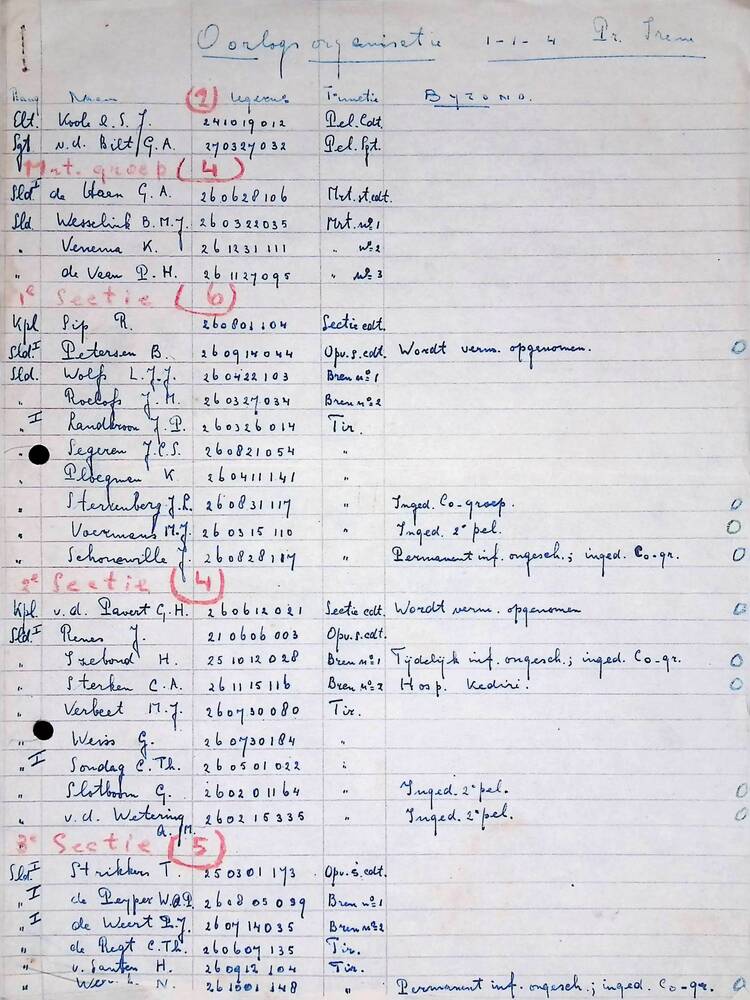 Oorlogsorganisatie 1-1-4 Pr. Irene
Rang Naam (2) legerno Functie Byzond.
Elt. Koole L.S.J. 241019012 Pel.Cdt.
Sgt v.d. Bilt/G.A. 270327032 Pel.Sgt.
Mrt. groep (4)
Sld I de Haan G.A. 260628106 Mrt.st.cdt.
Sld Wesselink B.M.J. 260322035 Mrt. no 1
" Venema K. 261231111 " no 2
" de Vaan P.H. 261127095 " no 3
1e Sectie (6)
Kpl Sip R. 260801104 Sectie cdt.
Sld. I Petersen B. 260914044 Opv.s.cdt. Wordt verm. opgenomen. 0
Sld. Wolfs L.J.J. 260422103 Bren no 1
" Roelofs J.M. 260327034 Bren no 2
" I Randeroon J.P. 260326014 Tir.
" Segeren J.C.S. 260821054 "
" Ploegman K 260411141 "
" Sterkenberg J.L. 260831117 " Inged. Co-groep. 0
" Voermans M.J. 260315110 " Inged. 2e pel. 0
" Schoneville J. 260828117 " Permanent inf. ongesch.; inged. Co-gr. 0
2e Sectie (4)
Kpl. v.d. Pavert G.H. 260612021 Sectie cdt. Wordt verm. opgenomen 0
Sld. I Renes J. 210606003 Opv.s.cdt.
" Izebond H. 251012028 Bren no 1 Tijdelijk inf. ongesch.; inged. Co-gr. 0
" Sterken C.A. 261115116 Bren no 2 Hosp. Kediri. 0
" Verbeet M.J. 260730080 Tir.
" Weiss G. 260730184 "
" I Sondag C.Th. 260501022 "
" Slotboom G. 260201164 " Inged. 2e pel. 0
" v.d. Wetering A.M. 260215335 " Inged. 2e pel. 0
3e Sectie (5)
Sld I Strikkers T. 250301173 Opv.s.cdt.
" I de Peyper W.A.P. 260805099 Bren no 1
" I de Weert P.J. 260714035 Bren no 2
" de Regt C.Th. 260607135 Tir.
" v. Santen H. 260912104 Tir.
" N. 261001148 " Permanent inf. ongesch.; inged. Co-gr. 0